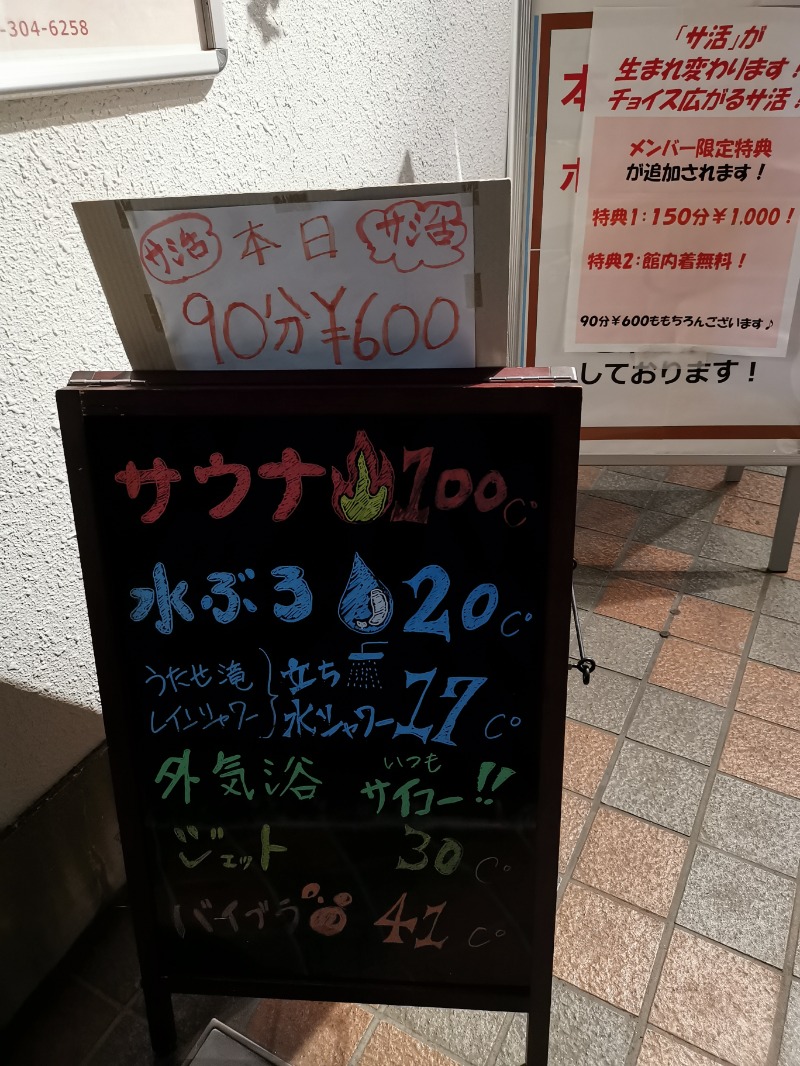 -304-6258
「サ活」が
生まれ変わります！
チョイス広がるサ活！
メンバー限定特典
が追加されます！
特典1：150分￥1.000！
特典2：館内着無料！
90分￥600ももちろんございます♪
しております！
サ活 本日 サ活
90分￥600
サウナ 100C°
水ぶろ 20C°
うたせ滝
レインシャワー
立ち
水シャワー 17C°
外気浴 いつも
サイコー!!
ジェット 30C°
バイブラ 41C°